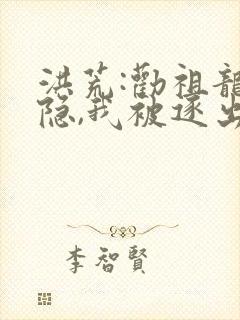 洪荒:勸祖龍
隐,我被逐出
李智賢